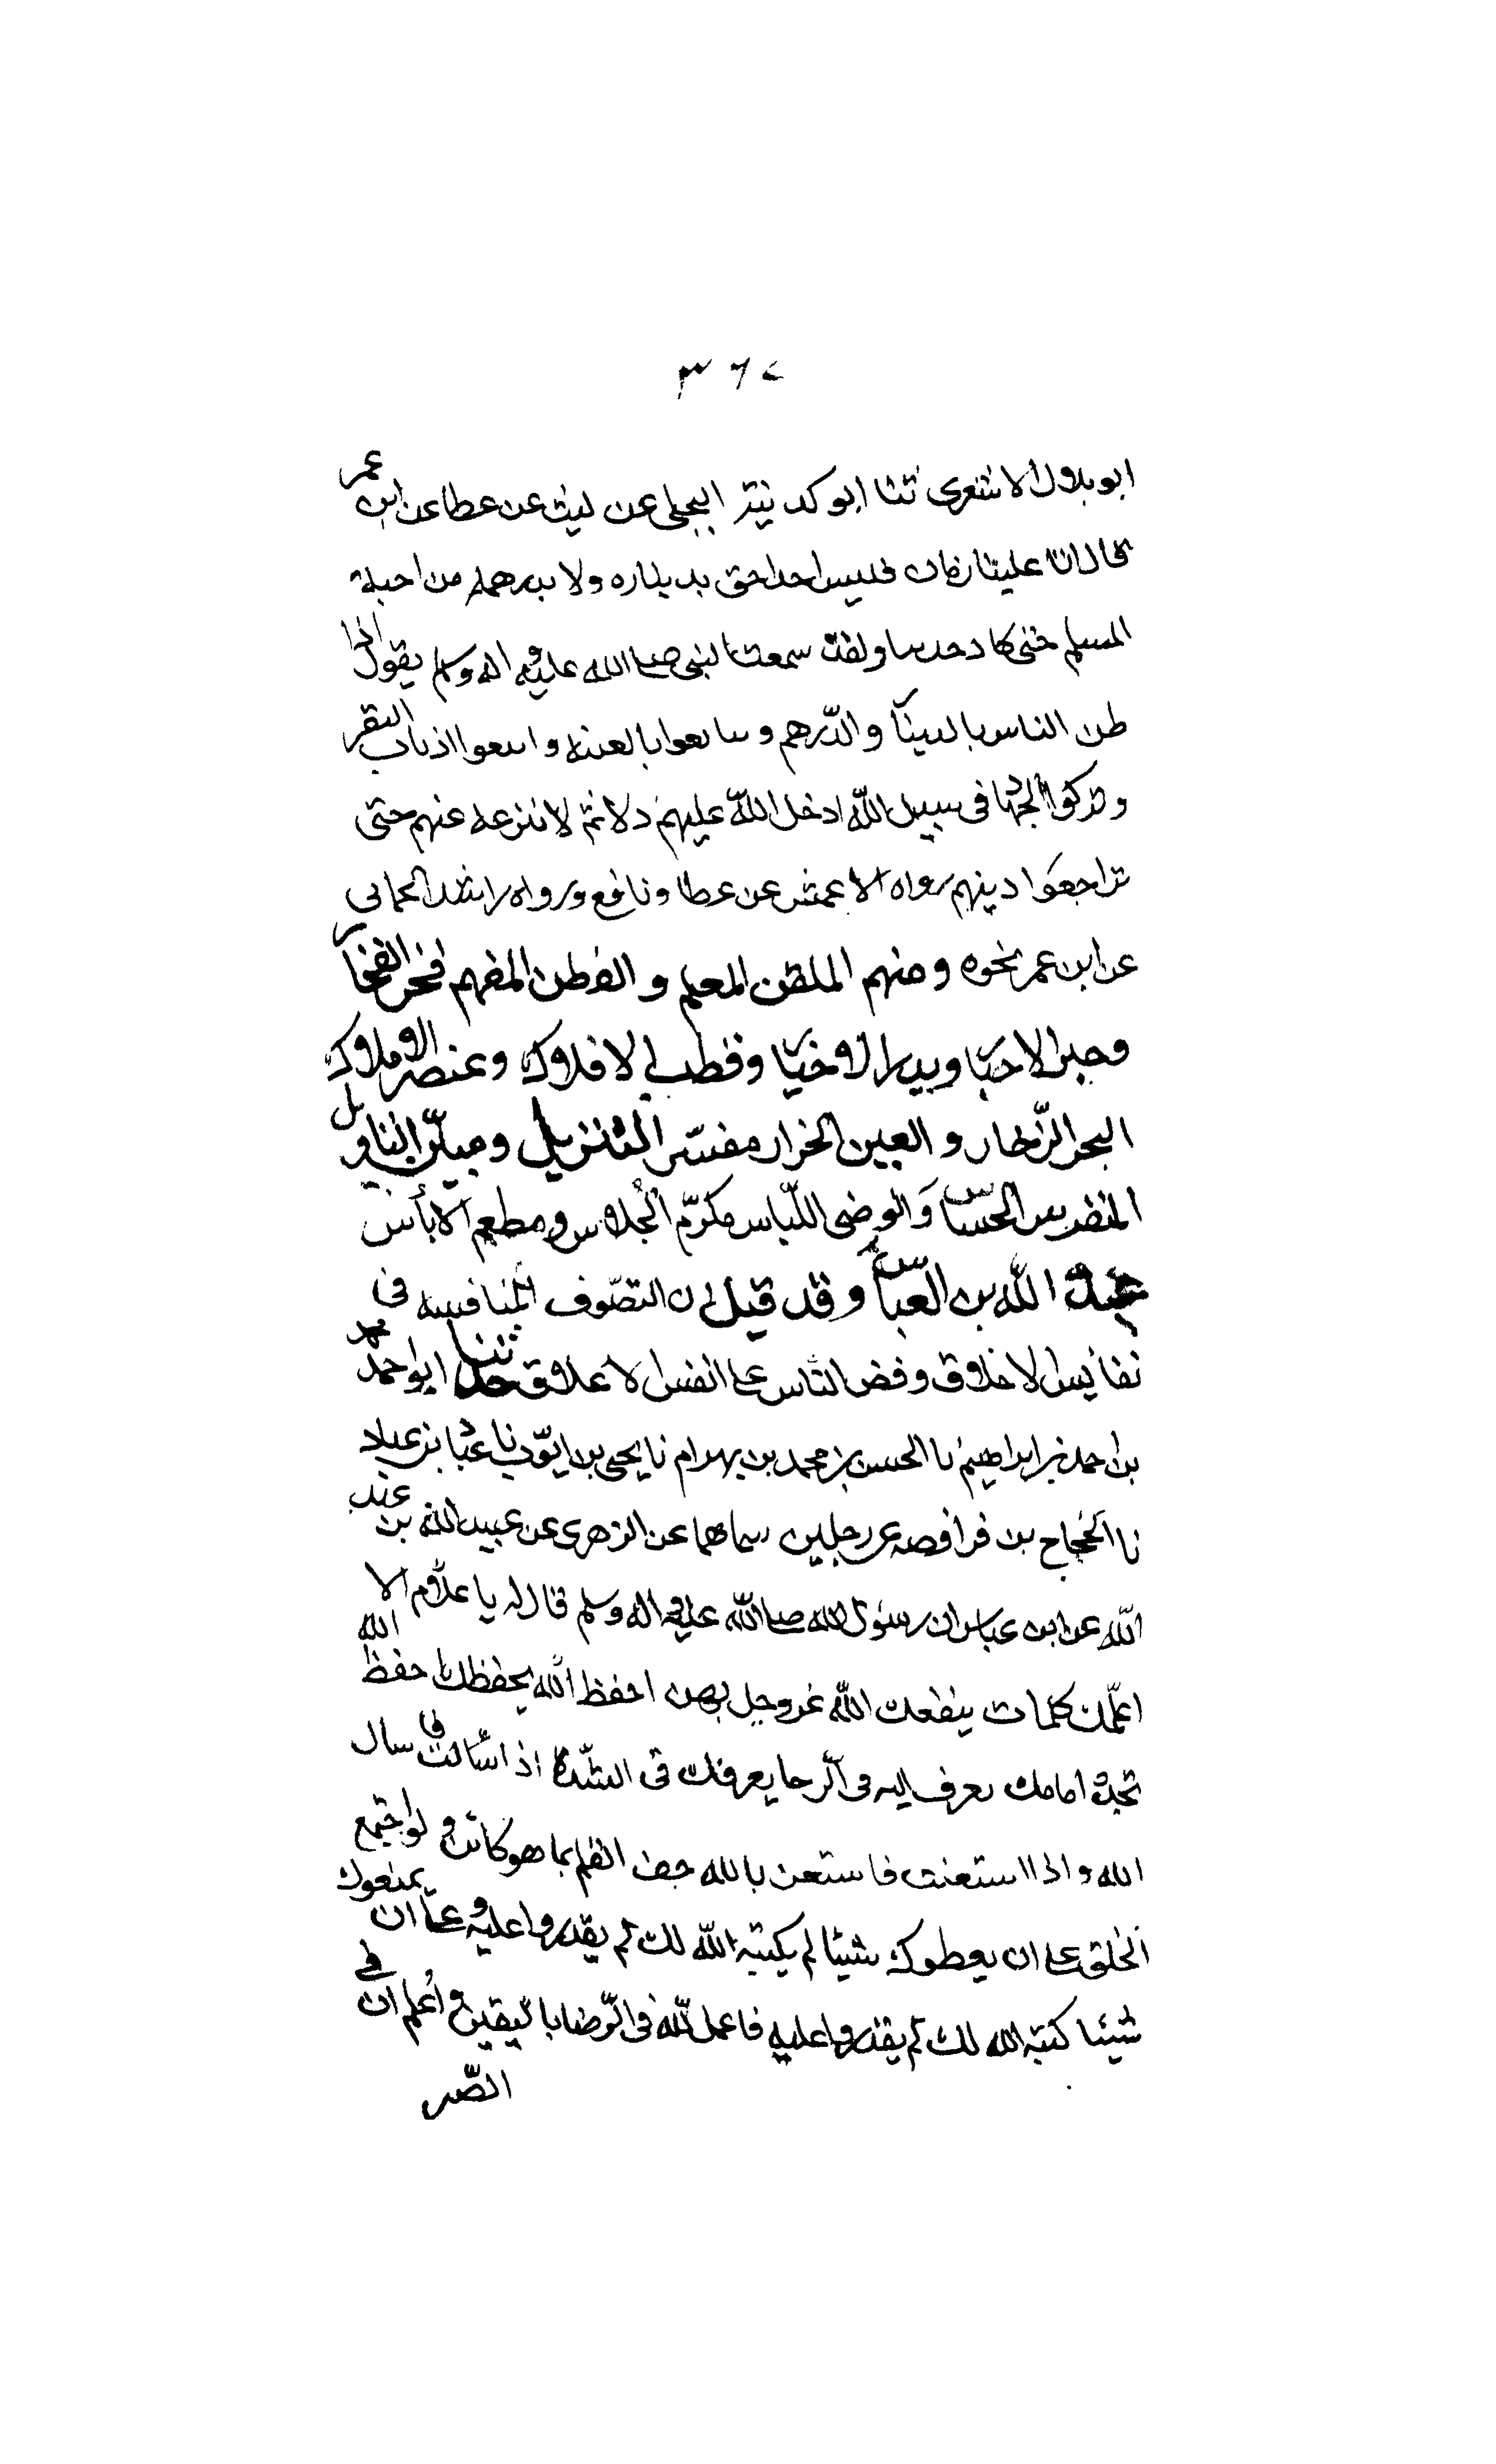 ٣٦٧
ابو بلال الاشعرى ثنا ابو كدينة البجلى عن ليث عن عطا عن ابن عمر
قال اتا علينا زمان فليس احدا حق بديناره ولا بدرهمه من اخيه
المسلم حتى كا سمعت النبى صلى الله عليه و اله وسلم يقول اذا
ظن الناس بالدينا والدّرهم وتبايعوا بالعينه واتبعوا اذناب البقر
وتركوا الجها فى سبيل اللّه ادخل اللّه عليهم ذلا ثم لا ينزعه عنهم حتى
تراجعوا دينهم رواه الاعمش عن عطا و نافع ورواه راشد الحمانى
عن ابن عمر نحوه ومنهم الملقن المعلم و الفطن المفهم فخر الفخار
وحبر الاحبا وبدر الاخيا وقطب الافلاك وعنصر الاملاك
البحر الزّخار و العين الخرار مفسّر التنزيل ومبيّن التاويل
المتفرس الحسّاس وَالوضى اللّباس مكرّم الجُلاس ومطعم الاناس
عبد اللّه بن العبّاس وقد قيل ان التصّوف المنافسه فى
نفائس الاخلاق ورفض الناس على انفس الاعلاق حدثنا ابو احمد محمد
بن احمد بن ابراهيم نا الحسن بن محمد بن بهرام نا يحيى بن ايّوب نا عبا بن عباد
نا الحجاج بن فرافصه عن رجلين سماهما عن الزهرى عن عبيد اللّه بن عبد
اللّه عن ابن عباس ان رسول اللّه صلى اللّه عليه و اله وسلم قال له يا غلام الا
اعلّمك كلمات ينفعك اللّه عز وجل بهن احفظ اللّه يحفظك احفظ اللّه
تجده امامك تعرف اليه فى الّرخا يعرفك فى الشدّة اذا سالت فاسال
الله واذا استعنت فاستعن بالله جف القلم بما هو كائن و لو اجتمع
الخلق على ان يعطوك شيئا لم يكتبه اللّه لك لم يقدروا عليه و على ان يمنعوك
شيئا كتبه الله لك لم يقدروا عليه فاعمل للّه فى الّرضا باليقين و اعلم ان فى
الصّبر